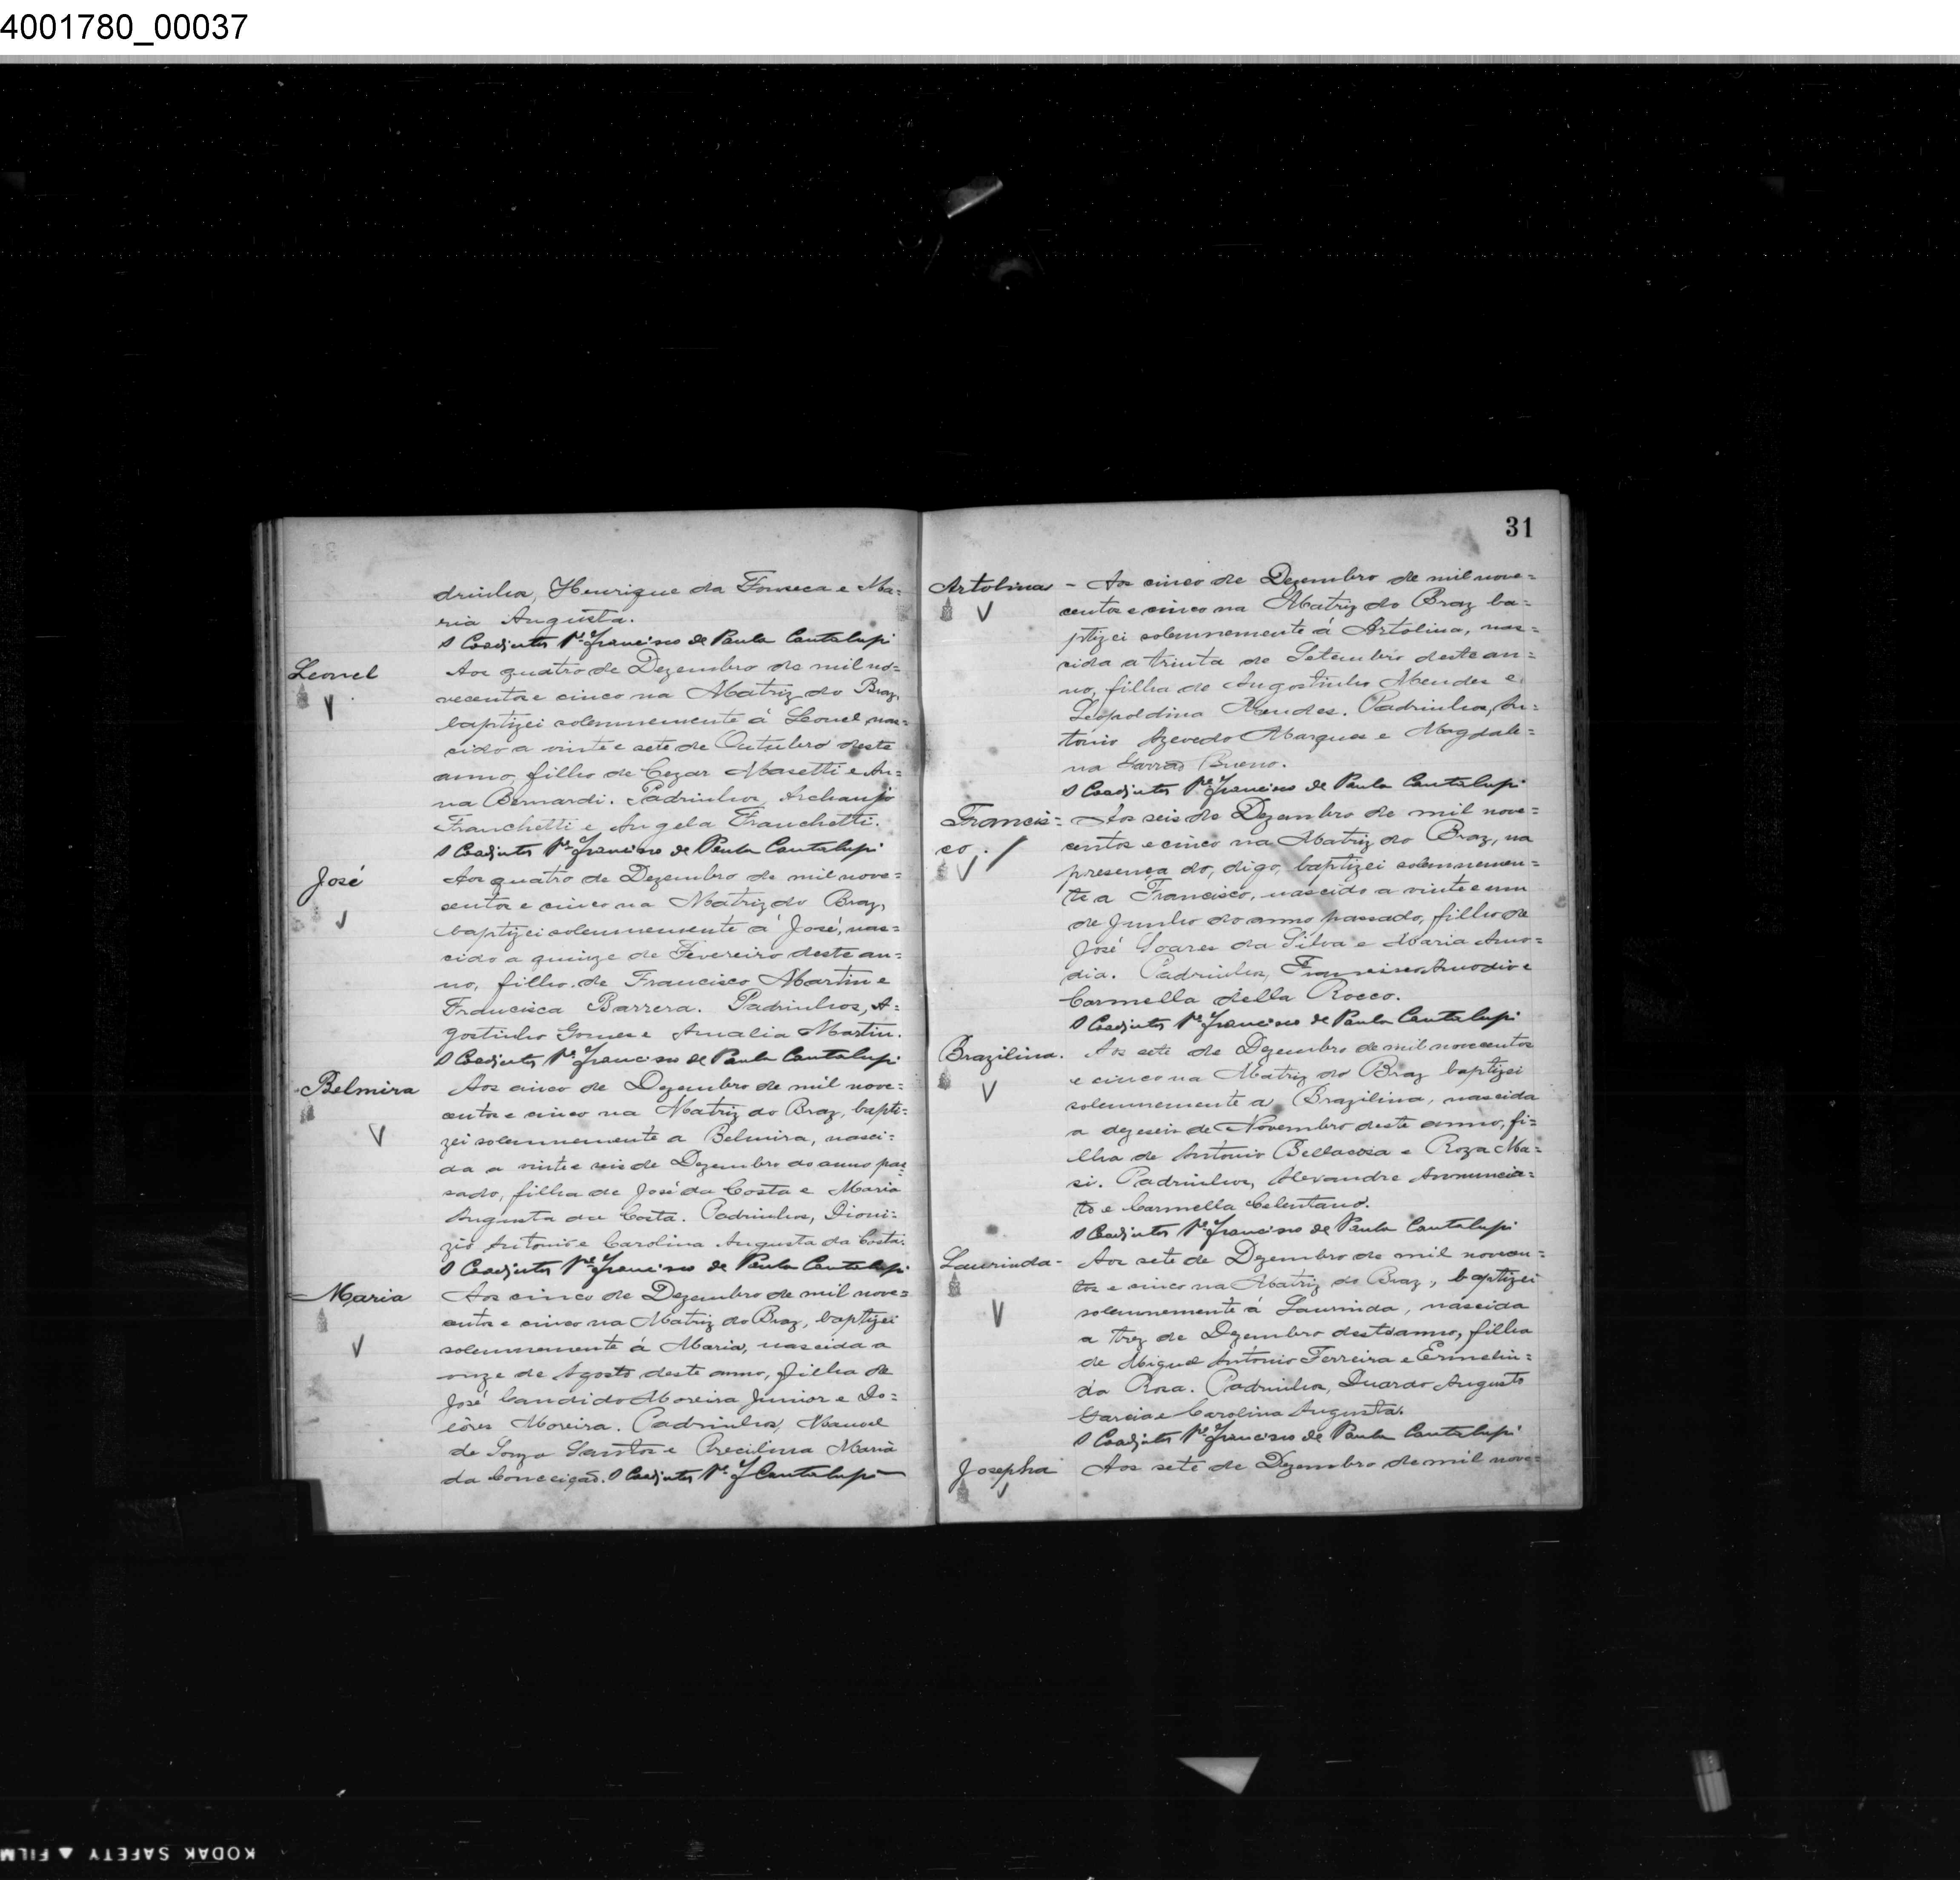 4001780_00037
drinhos, Henrique da Fonseca e Ma=
ria Augusta.
O Coadjutor Pe. Francisco de Paula Cantalupi
Leonel
Aos quatro de Dezembro de mil no=
vecentos e cinco na Matriz do Braz,
baptizei solemnemente á Leonel, nas=
cido a vinte e sete de Outubro deste
anno, filho de Cezar Masetti e An=
na Bernardi. Padrinhos, Archanjo
Franchetti e Angela Franchetti.
O Coadjutor Pe. Francisco de Paula Cantalupi
José
Aos quatro de Dezembro de mil nove=
centos e cinco na Matriz do Braz,
baptizei solemnemente á José, nas=
cido a quinze de Fevereiro deste an=
no, filho de Francisco Martin e
Francisca Barrera. Padrinhos, A=
gostinho Gomes e Amalia Martin.
O Coadjutor Pe. Francisco de Paula Cantalupi
Belmira
Aos cinco de Dezembro de mil nove=
centos e cinco na Matriz do Braz, bapti=
zei solemnemente a Belmira, nasci=
da a vinte e seis de Dezembro do anno pas=
sado, filha de José da Costa e Maria
Augusta da Costa. Padrinhos, Dioni=
zio Antonio e Carolina Augusta da Costa.
O Coadjutor Pe. Francisco de Paula Cantalupi
Maria
Aos cinco de Dezembro de mil nove=
centos e cinco na Matriz do Braz, baptizei
solemnemente á Maria, nascida a
onze de Agosto deste anno, filha de
José Candido Moreira Junior e Do=
lôres Moreira. Padrinhos, Manoel
de Souza Santos e Precilina Maria
da Conceição. O Coadjutor Pe. F Cantalupi
31
Artolina - Aos cinco de Dezembro de mil nove=
centos e cinco na Matriz do Braz ba=
ptizei solemnemente á Artolina, nas=
cida a trinta de Setembro deste an=
no, filha de Augostinho Mendes e
Leopoldina Mendes. Padrinhos, An=
tonio Azevedo Marques e Magdale=
na Bueno.
O Coadjutor Pe. Francisco de Paula Cantalupi
Francis=
co.
Aos seis de Dezembro de mil nove=
centos e cinco na Matriz do Braz, na
presença do, digo, baptizei solemnemen=
te a Francisco, nascido a vinte e um
de Junho do anno passado, filho de
José Soares da Silva e Maria Amo=
dia. Padrinhos, Francisco Amodio e
Carmella della Rocco.
O Coadjutor Pe. Francisco de Paula Cantalupi
Brazilina.
Aos sete de Dezembro de mil novecentos
e cinco na Matriz do Braz baptizei
solemnemente a Brazilina, nascida
a dezeseis de Novembro deste anno, fi=
lha de Antonio Bellacosa e Roza Ma=
si. Padrinhos, Alexandre Annuncia=
to e Carmella Celentano.
O Coadjutor Pe. Francisco de Paula Cantalupi
Laurinda -
Aos sete de Dezembro de mil novecen=
tos e cinco na Matriz do Braz, baptizei
solemnemente á Laurinda, nascida
a trez de Dezembro deste anno, filha
de Miguel Antonio Ferreira e Ermelin=
da Rosa. Padrinhos, Duardo Augusto
Garcia e Carolina Augusta.
O Coadjutor Pe. Francisco de Paula Cantalupi
Josepha
Aos sete de Dezembro de mil nove=
KODAK SAFETY ▲ FILM